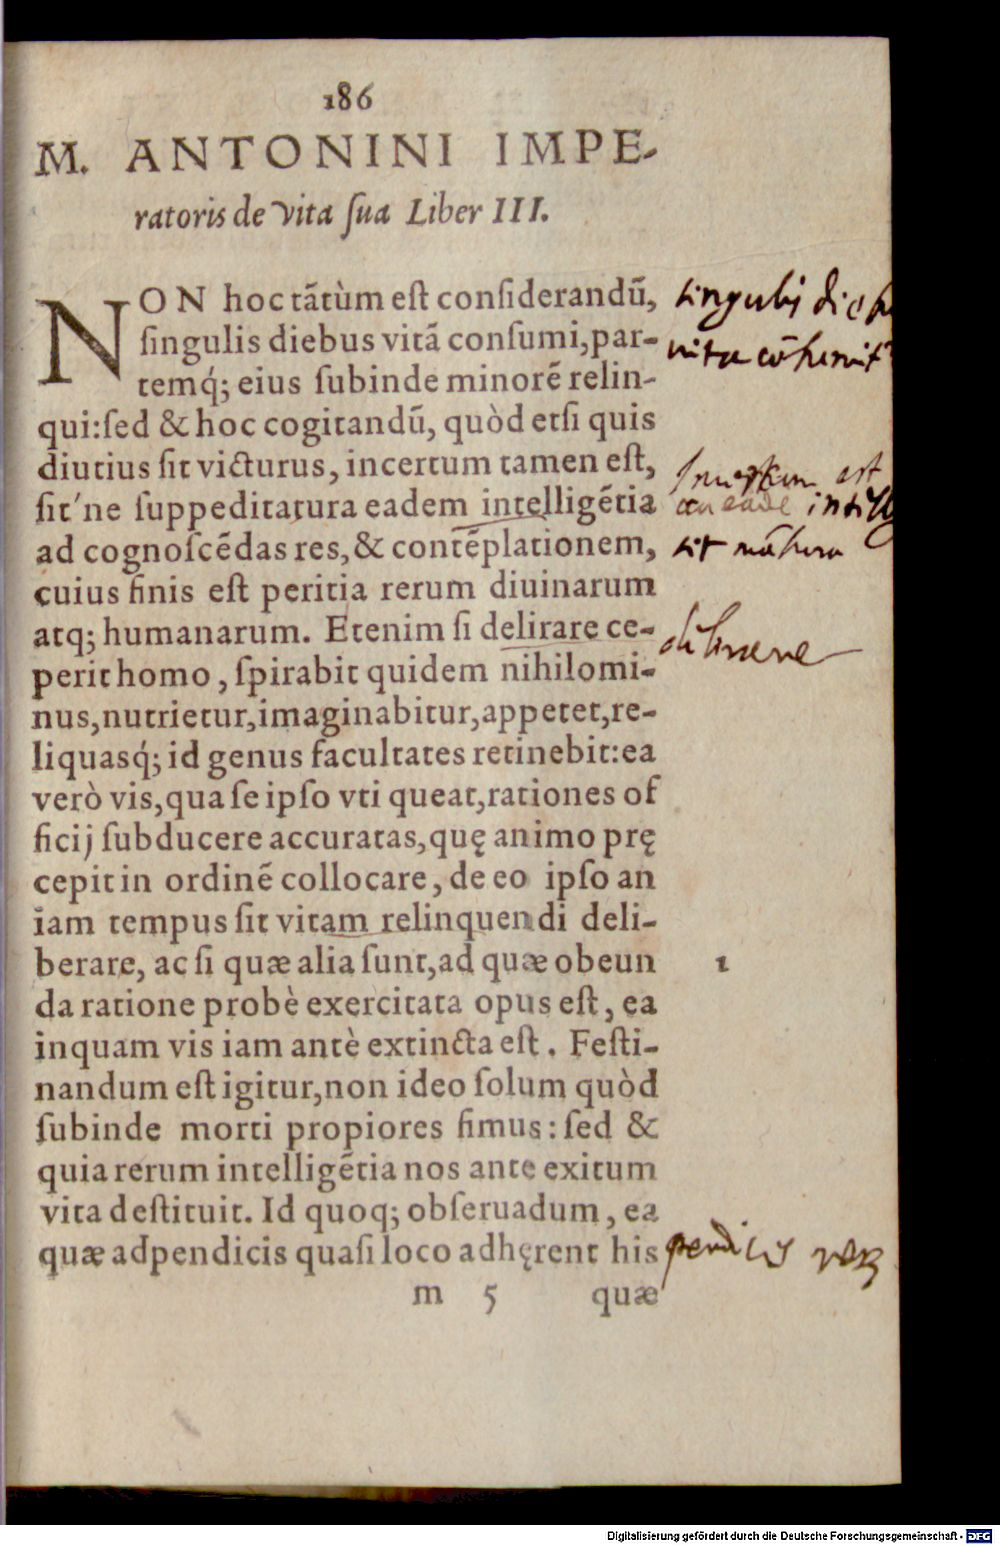 186
M. ANTONINI IMPE-
ratoris de vita ſua Liber III.
NON hoc tātùm eſt conſiderandū,
ſingulis diebus vitā conſumi, par-
temq́; eius ſubinde minorē relin-
qui: ſed & hoc cogitandū, quòd etſi quis
diutius ſit victurus, incertum tamen eſt,
ſit'ne ſuppeditatura eadem intelligētia
ad cognoſcēdas res, & contēplationem,
cuius finis eſt peritia rerum diuinarum
atq; humanarum. Etenim ſi delirare ce-
perit homo, ſpirabit quidem nihilomi-
nus, nutrietur, imaginabitur, appetet, re-
liquasq́; id genus facultates retinebit: ea
verò vis, qua ſe ipſo vti queat, rationes of
ficij ſubducere accuratas, quę animo prę
cepit in ordinē collocare, de eo ipſo an
iam tempus ſit vitam relinquendi deli-
berare, ac ſi quæ alia ſunt, ad quæ obeun
da ratione probè exercitata opus eſt, ea
inquam vis iam antè extincta eſt. Feſti-
nandum eſt igitur, non ideo ſolum quòd
ſubinde morti propiores ſimus: ſed &
quia rerum intelligētia nos ante exitum
vita deſtituit. Id quoq; obſeruadum, ea
quæ adpendicis quaſi loco adhęrent his
m 5 quæ
singulis
vita
est
eadē
sit
1
Digitalisierung gefördert durch die Deutsche Forschungsgemeinschaft - DFG